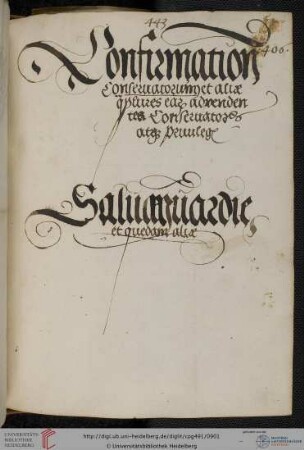 443
406.
Confirmation
Conseruatorium et aliæ
qplures earz
Conseruatores
atqz Priuileg
Saluaguardie,
et quedam aliæ
UNIVERSITÄTS-
BIBLIOTHEK
HEIDELBERG
http://digi.ub.uni-heidelberg.de/diglit/cpg491/0901
© Universitätsbibliothek Heidelberg